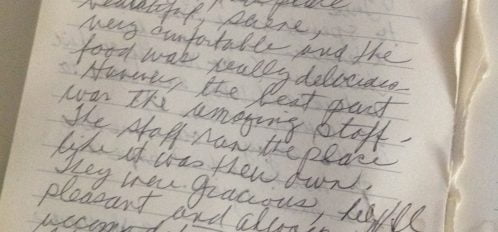 place
beautiful, serene,
very comfortable and the
food was really delicious
However, the best part
was the amazing staff.
The staff ran the place
like it was their own.
They were gracious, helpful
pleasant and